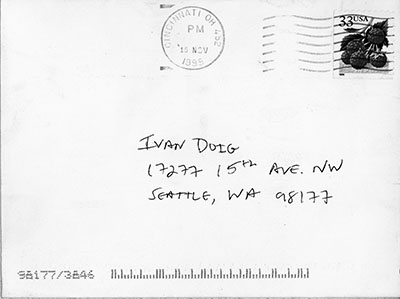 CINCINNATI OH 452
PM
NOV
33USA
IVAN DOIG
17277 15TH AVE. NW
SEATTLE, WA 98177
98177/3846